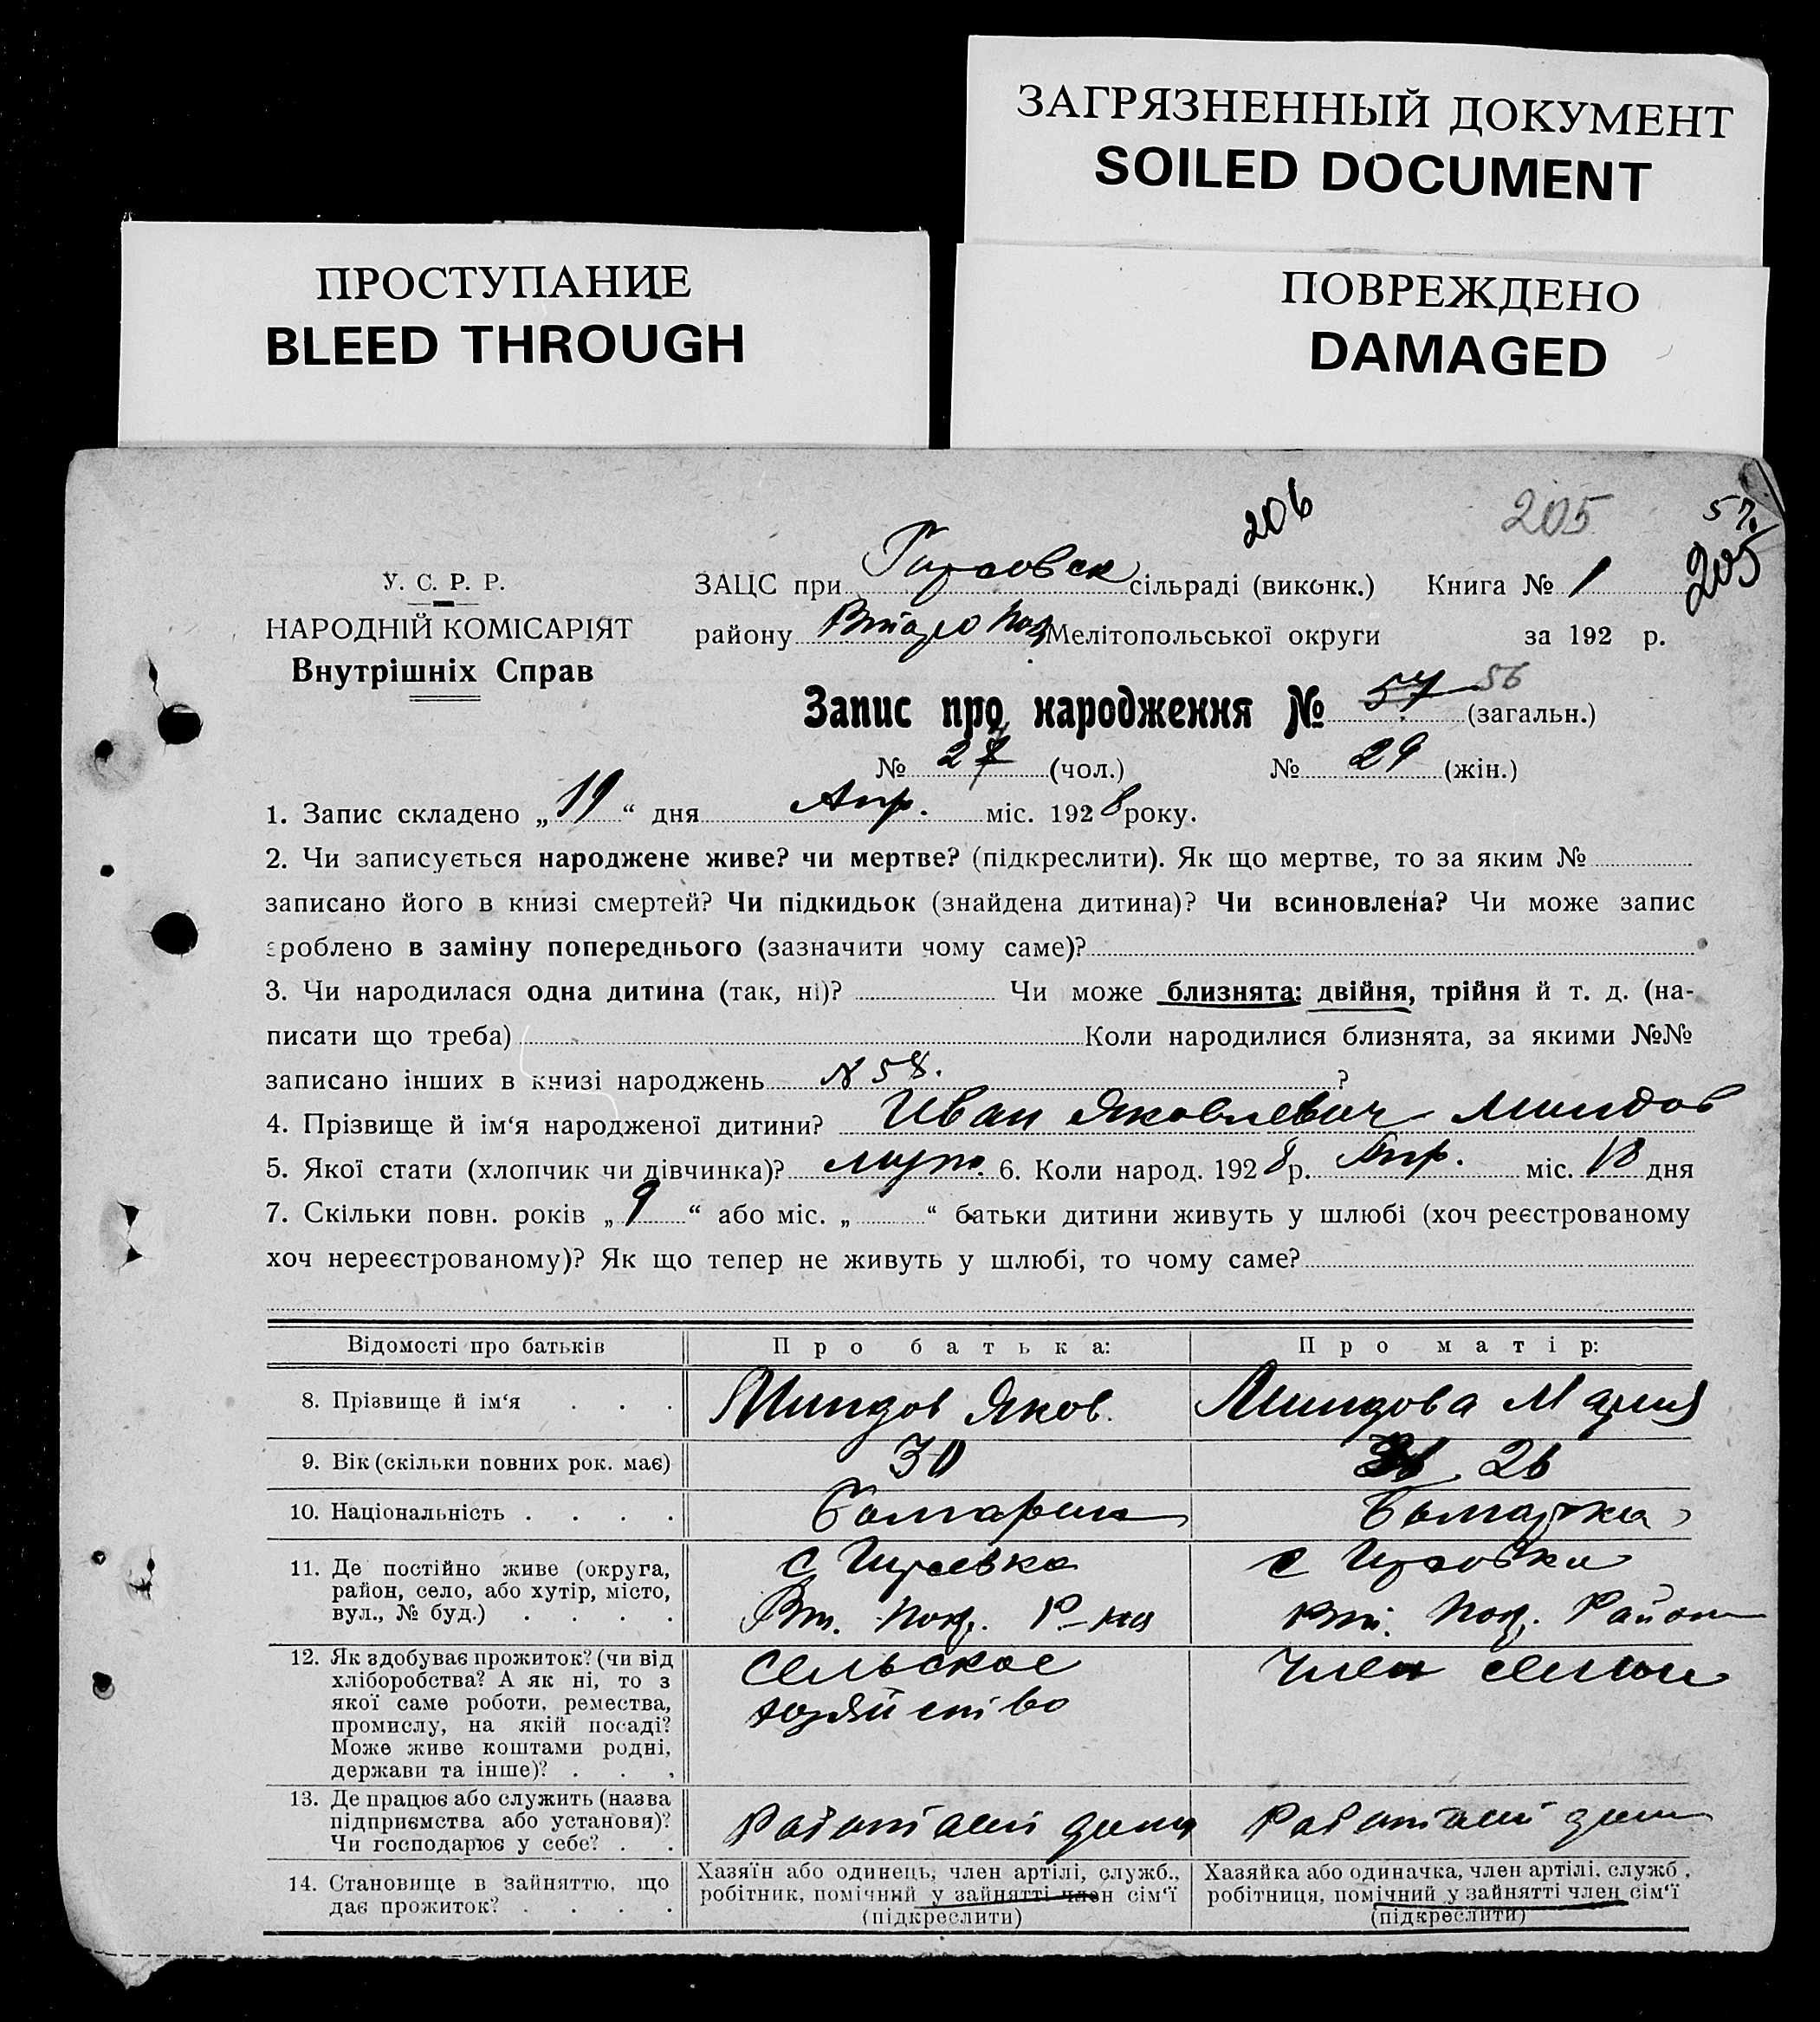 ЗАГРЯЗНЕННЫЙ ДОКУМЕНТ
SOILED DOCUMENT
ПРОСТУПАНИЕ
BLEED THROUGH
ПОВРЕЖДЕНО
DAMAGED
206
205
57.
205
У. С. Р. Р.
НАРОДНІЙ КОМІСАРІЯТ
Внутрішніх Справ
ЗАЦС при сільраді (виконк.) Книга № 1
району Мелітопольської округи за 192 р.
Запис про народження № 57 56 (загальн.)
№ 27 (чол.) № 29 (жін.)
1. Запис складено „19“ дня Апр. міс. 1928 року.
2. Чи записується народжене живе? чи мертве? (підкреслити). Як що мертве, то за яким №
записано його в книзі смертей? Чи підкидьок (знайдена дитина)? Чи всиновлена? Чи може запис
зроблено в заміну попереднього (зазначити чому саме)?
3. Чи народилася одна дитина (так, ні)? Чи може близнята: двійня, трійня й т. д. (на-
писати що треба) Коли народилися близнята, за якими №№
записано інших в книзі народжень N 58. ?
4. Прізвище й ім‘я народженої дитини? Иван Яковлевич Миндов
5. Якої стати (хлопчик чи дівчинка)? муж. 6. Коли народ. 1928 р. Апр. міс. 18 дня
7. Скільки повн. років „9“ або міс. „ “ батьки дитини живуть у шлюбі (хоч реєстрованому
хоч нереєстрованому)? Як що тепер не живуть у шлюбі, то чому саме?
Відомості про батьків Про батька: Про матір:
8. Прізвище й ім‘я . . . Миндов Яков. Миндова Мария
9. Вік (скільки повних рок. має) 30 26
10. Національність . . . . Болгарин Болгарка
11. Де постійно живе (округа,
район, село, або хутір, місто,
вул., № буд.) . . . .
с
Вт. Пок. Р-на
с
Вт. Пок. Район
12. Як здобуває прожиток? (чи від
хліборобства? А як ні, то з
якої саме роботи, ремества,
промислу, на якій посаді?
Може живе коштами родні,
держави та інше)? . . .
Сельское
хозяйство
Член семьи
13. Де працює або служить (назва
підприємства або установи)?
Чи господарює у себе? . .
Работает дома
Работает дома
14. Становище в зайняттю, що
дає прожиток? . . . .
Хазяїн або одинець, член артілі, служб.,
робітник, помічний у зайнятті член сім‘ї
(підкреслити)
Хазяйка або одиначка, член артілі, служб.,
робітниця, помічний у зайнятті член сім‘ї
(підкреслити)